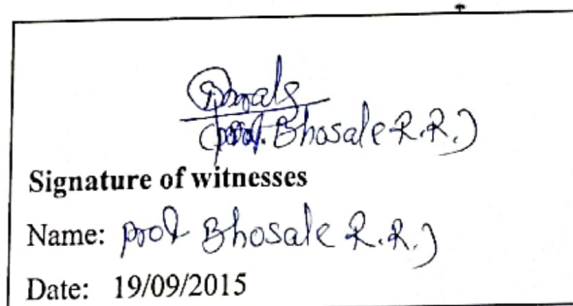 (prof. Bhosale R.R.)
Signature of witnesses
Name: prof Bhosale R.R.)
Date: 19/09/2015